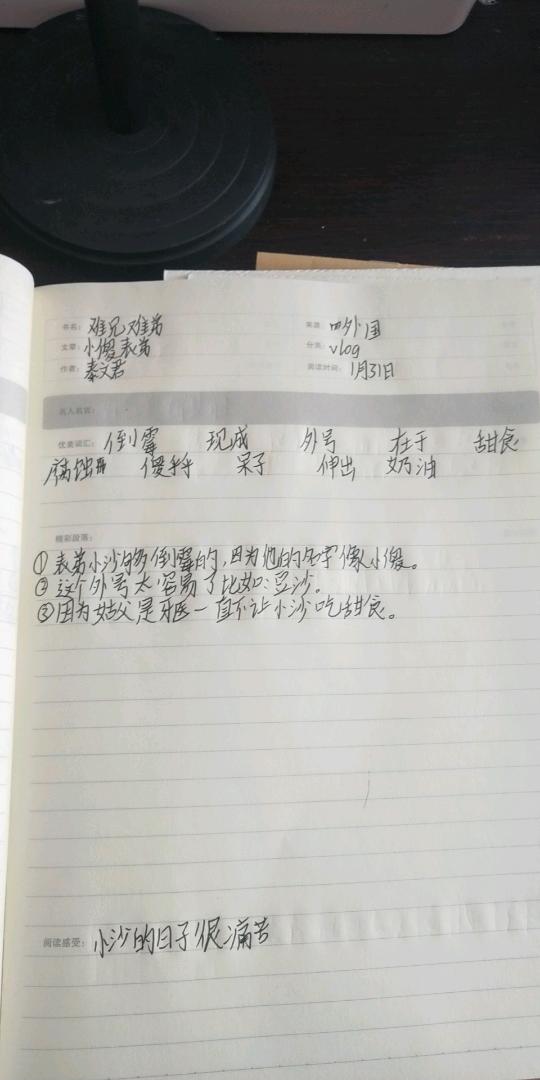 书名：难兄难弟
来源：中外国
文章：小傻表弟
分类：vlog
作者：秦文君
阅读时间：1月31日
名人名言：
优美词汇：倒霉 现成 外号 在于 甜食
腐蚀 傻乎乎 呆子 伸出 奶油
精彩段落：
①表弟小沙够倒霉的，因为他的名字像小傻。
②这个外号太容易了比如：豆沙。
③因为姑父是牙医一直不让小沙吃甜食。
阅读感受：小沙的日子很痛苦